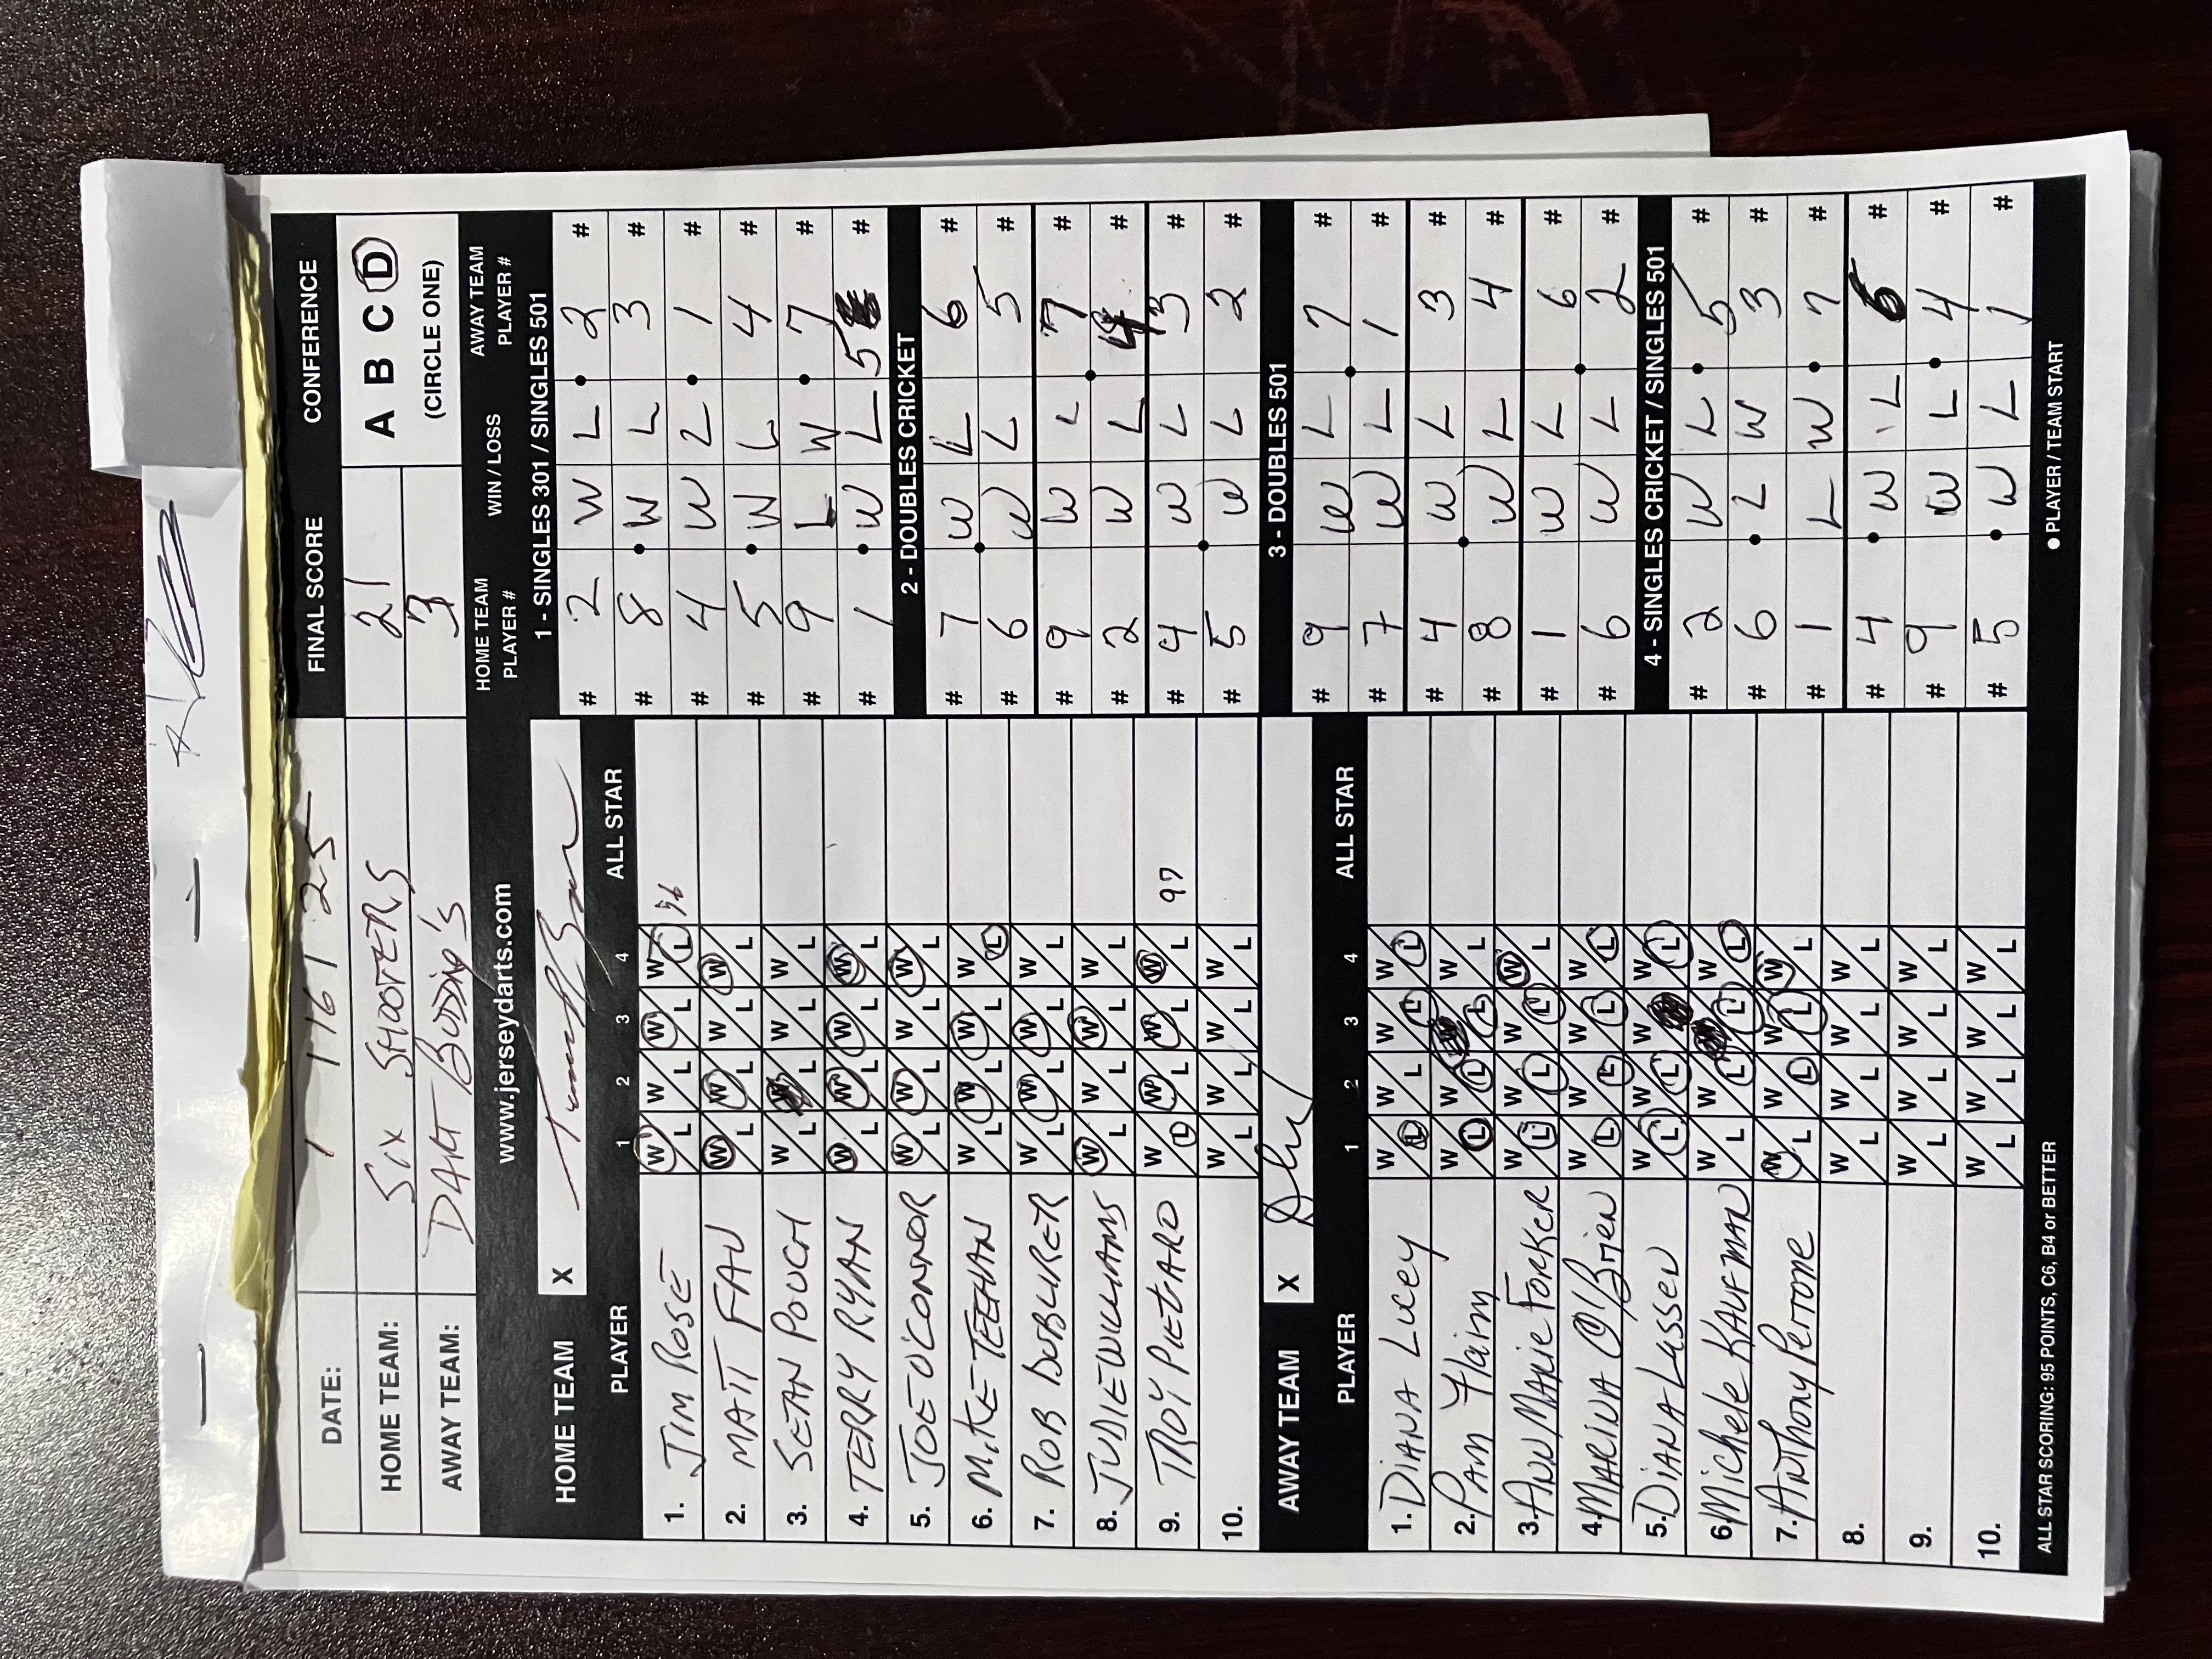 DATE: 1 / 16 / 25 FINAL SCORE CONFERENCE
HOME TEAM: SIX SHOOTERS 21 A B C D
AWAY TEAM: DART BUDDING'S 3 (CIRCLE ONE)
www.jerseydarts.com
HOME TEAM PLAYER # WIN / LOSS AWAY TEAM PLAYER #
HOME TEAM X
PLAYER 1 2 3 4 ALL STAR
1. JIM ROSE W L W L W L W L
2. MATT FAU W L W L W L W L
3. SEAN POUCH W L L W L W L
4. TERRY RYAN W L W L W L W L
5. JOE O'CONNOR W L W L W L W L
6. MIKE TEEHAN W L W L W L W L
7. ROB DUBLIRER W L W L W L W L
8. JUDIE WILLIAMS W L W L W L W L
9. TROY PIEGARO W L W L W L W L 97
10. W L W L W L W L
AWAY TEAM X
PLAYER 1 2 3 4 ALL STAR
1. DIANA LUCEY W L W L W L W L
2. PAM Flaim W L W L L W L
3. ANN MARIE FORKER W L W L W L W L
4. MARINA O'Brien W L W L W L W L
5. DIANA LASSEN W L W L W W L
6. Michele KAUFMAN W L W L L W L
7. ANThony Perrone W L W L W L W L
8. W L W L W L W L
9. W L W L W L W L
10. W L W L W L W L
ALL STAR SCORING: 95 POINTS, C6, B4 or BETTER
1 - SINGLES 301 / SINGLES 501
# 2 W L 2 #
# 8 W L 3 #
# 4 W L 1 #
# 5 W L 4 #
# 9 L W 7 #
# 1 W L 5 #
2 - DOUBLES CRICKET
# 7 W L 6 #
# 6 W L 5 #
# 9 W L 7 #
# 2 W L 4 #
# 4 W L 3 #
# 5 W L 2 #
3 - DOUBLES 501
# 9 W L 7 #
# 7 W L 1 #
# 4 W L 3 #
# 8 W L 4 #
# 1 W L 6 #
# 6 W L 2 #
4 - SINGLES CRICKET / SINGLES 501
# 2 W L 5 #
# 6 L W 3 #
# 1 L W 7 #
# 4 W L 6 #
# 9 W L 4 #
# 5 W L 1 #
● PLAYER / TEAM START